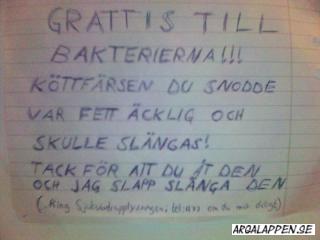 GRATTIS TILL
BAKTERIERNA!!!
KÖTTFÄRSEN DU SNODDE
VAR FETT ÄCKLIG OCH
SKULLE SLÄNGAS!
TACK FÖR ATT DU ÅT DEN
OCH JAG SLAPP SLÄNGA DEN
(Ring Sjukvårdsupplysningen, om du mår dåligt)
ARGALAPPEN.SE